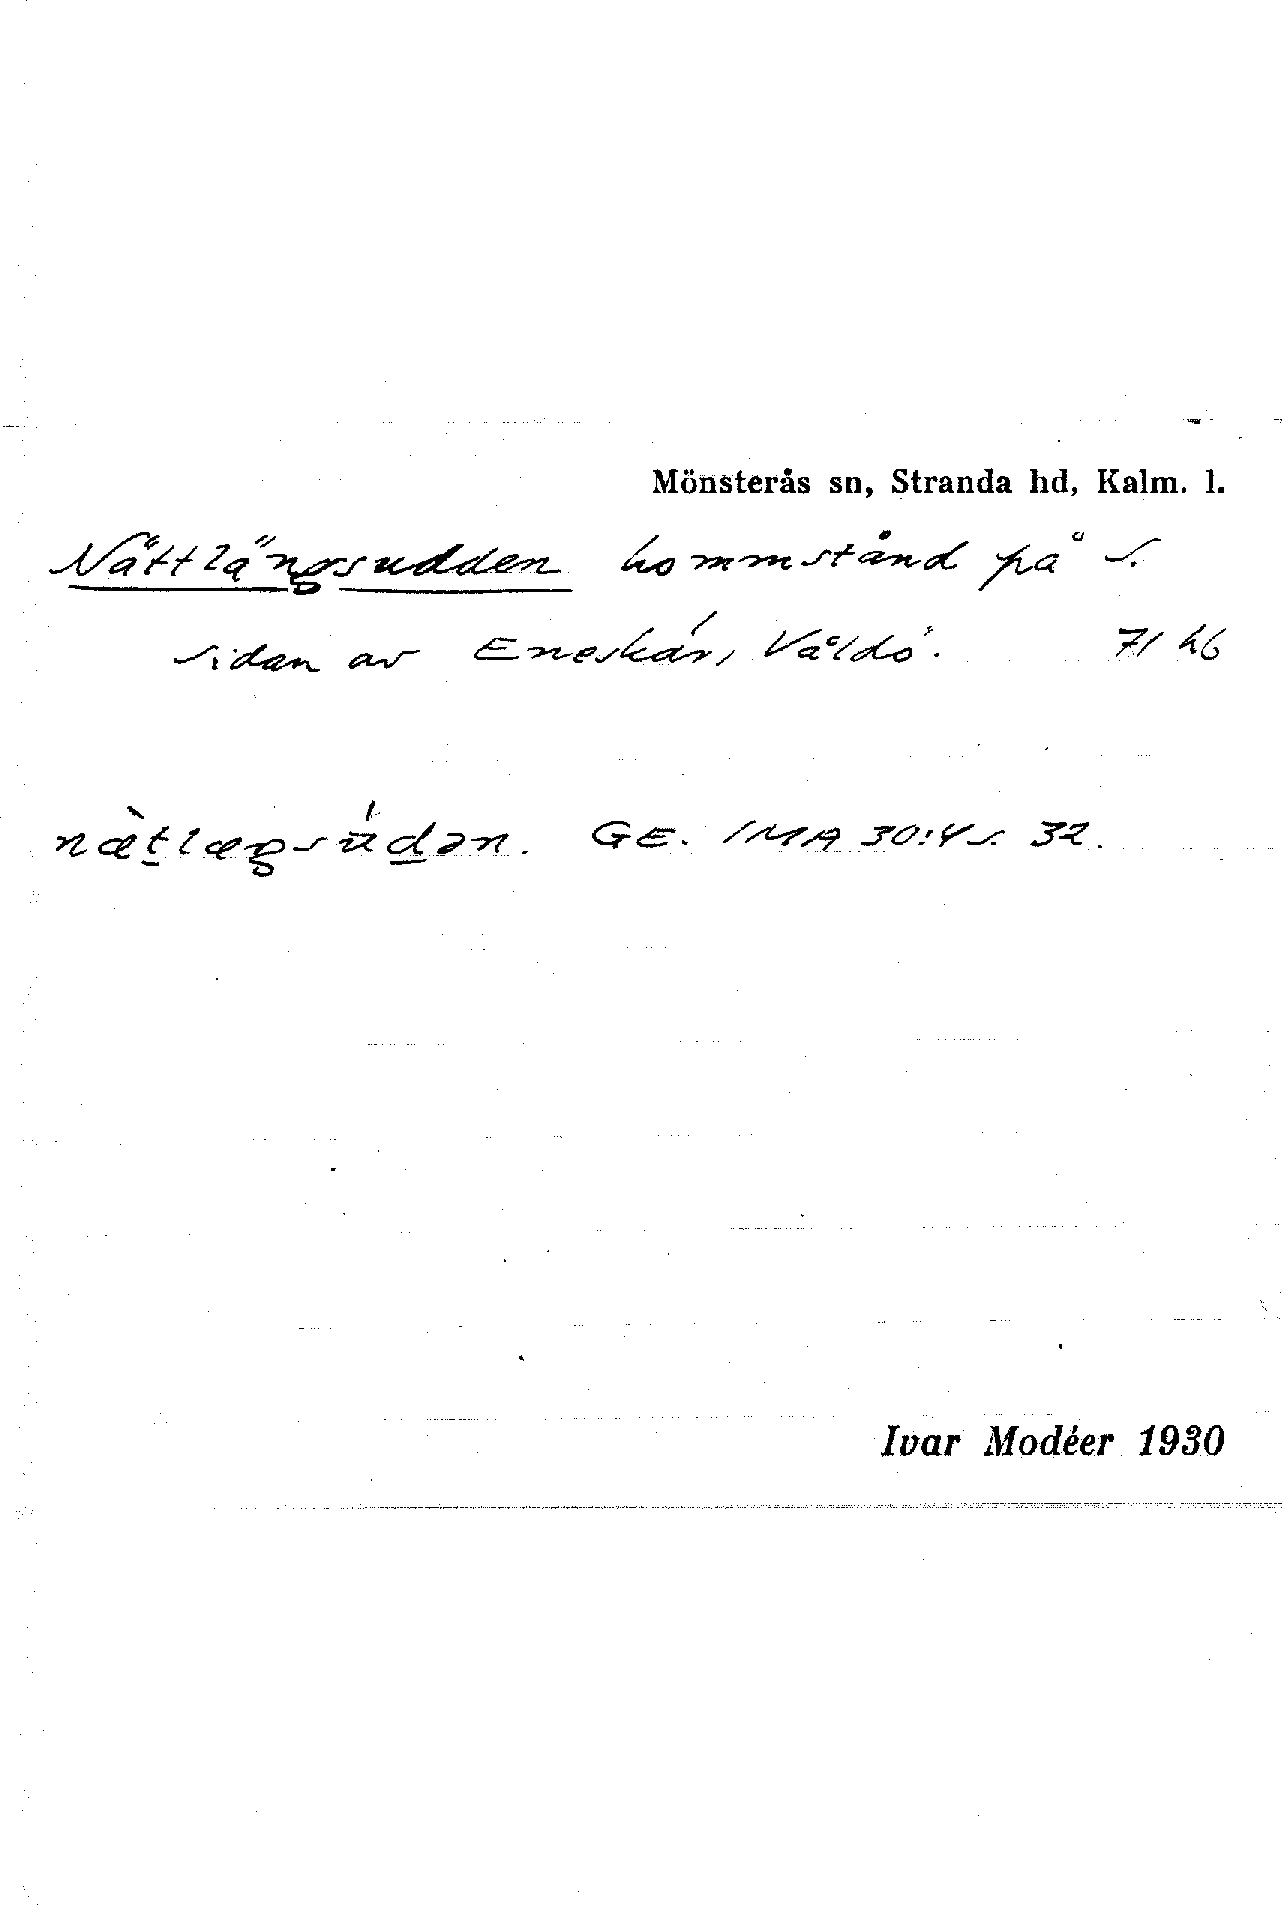 Mönsterås sn, Stranda hd, Kalm. l.
Nättlängsudden hommstånd på s.
sidan av Eneskär, Våldö. 71 h6
nὰt̲læŋsúd̲ən. GE. IMA 30:4 s. 32.
Ivar Modéer 1930